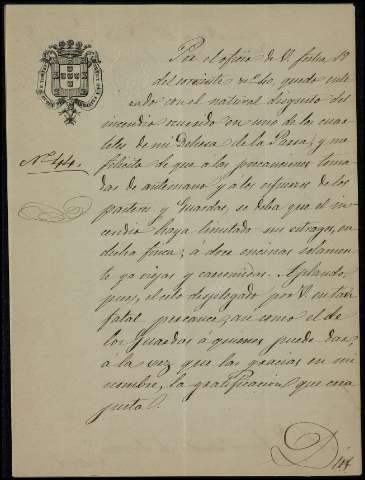 Por el oficio de V. fecha 19
del corriente nº 40, quedo ente-
rado con el natural disgusto del
incendio ocurrido en uno de los cuar-
teles de mi Dehesa de la Parra; y me
felicito de que a las precauciones toma-
das de antemano y á los esfuerzos de los
pastores y Guardas, se deba que el in-
cendio haya limitado sus estragos, en
dicha finca, á doce encinas solamen-
te ya viejas y carcomidas. Aplaudo,
pues, el celo desplegado por V. en tan
fatal percance, asi como el de
los Guardas á quienes puede dar,
á la vez que las gracias en mi
nombre, la gratificacion que crea
justa.
Nº 424.
Dios